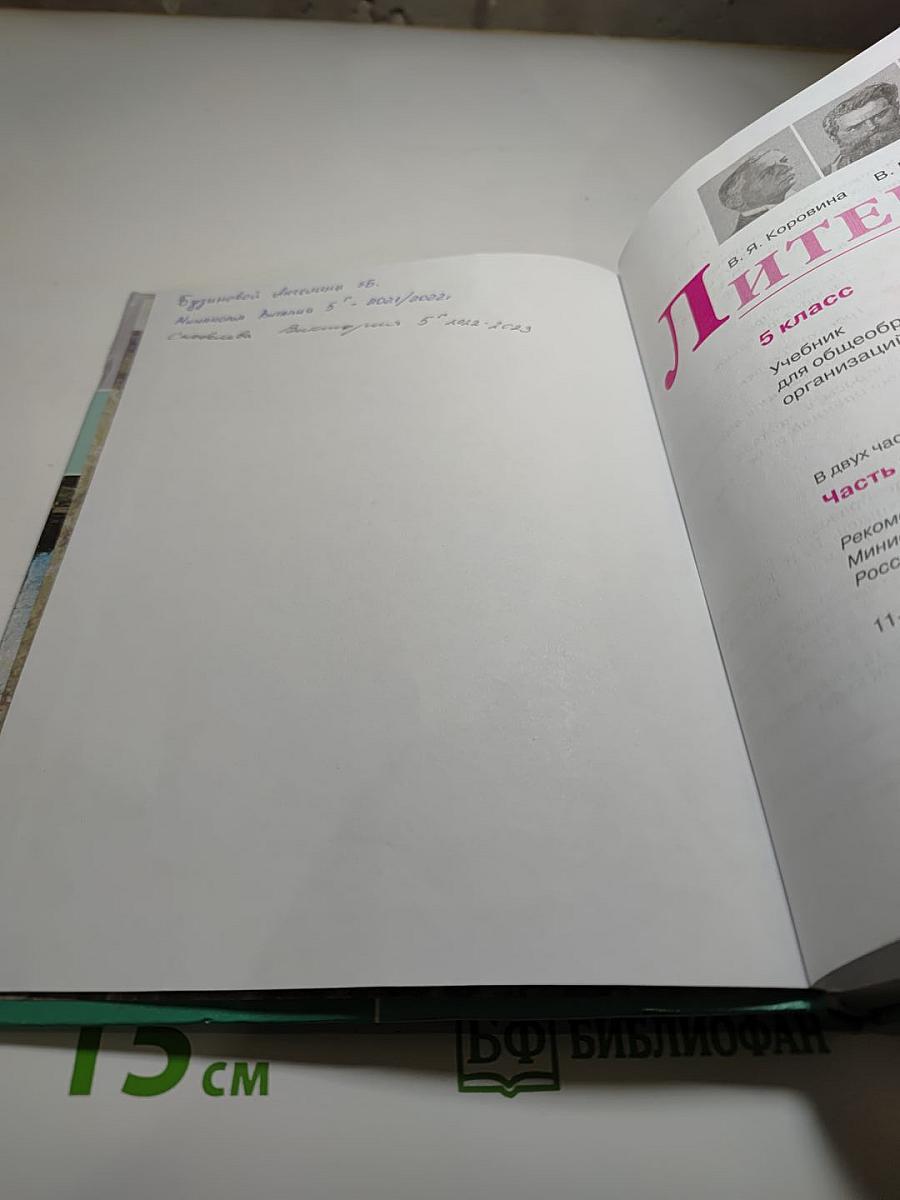 Бузиновой Ангелины 5Б.
Виталий 5 г - 2021/2022г
Виктория 5 г 2022-2023
В. Я. Коровина В.
ЛИТЕ
5 класс
Учебник
для общеобр
организаций
В двух час
Часть
Реком
Мини
Росс
11-
15 см
БФ БИБЛИОФАН